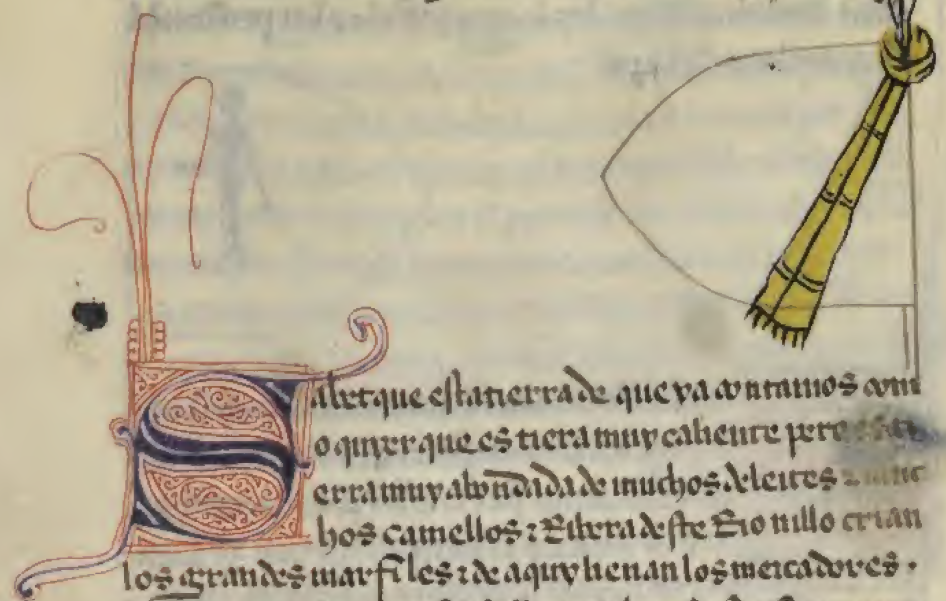 Sabet que esta tierra de que ya contamos com
o quier que es tiera muy caliente pero
erra muy abondada de muchos deleites ⁊ muc
hos camellos ⁊ Ribera deste Rio nillo crian
los grandes marfiles ⁊ de aquy lieuan los mercadores .